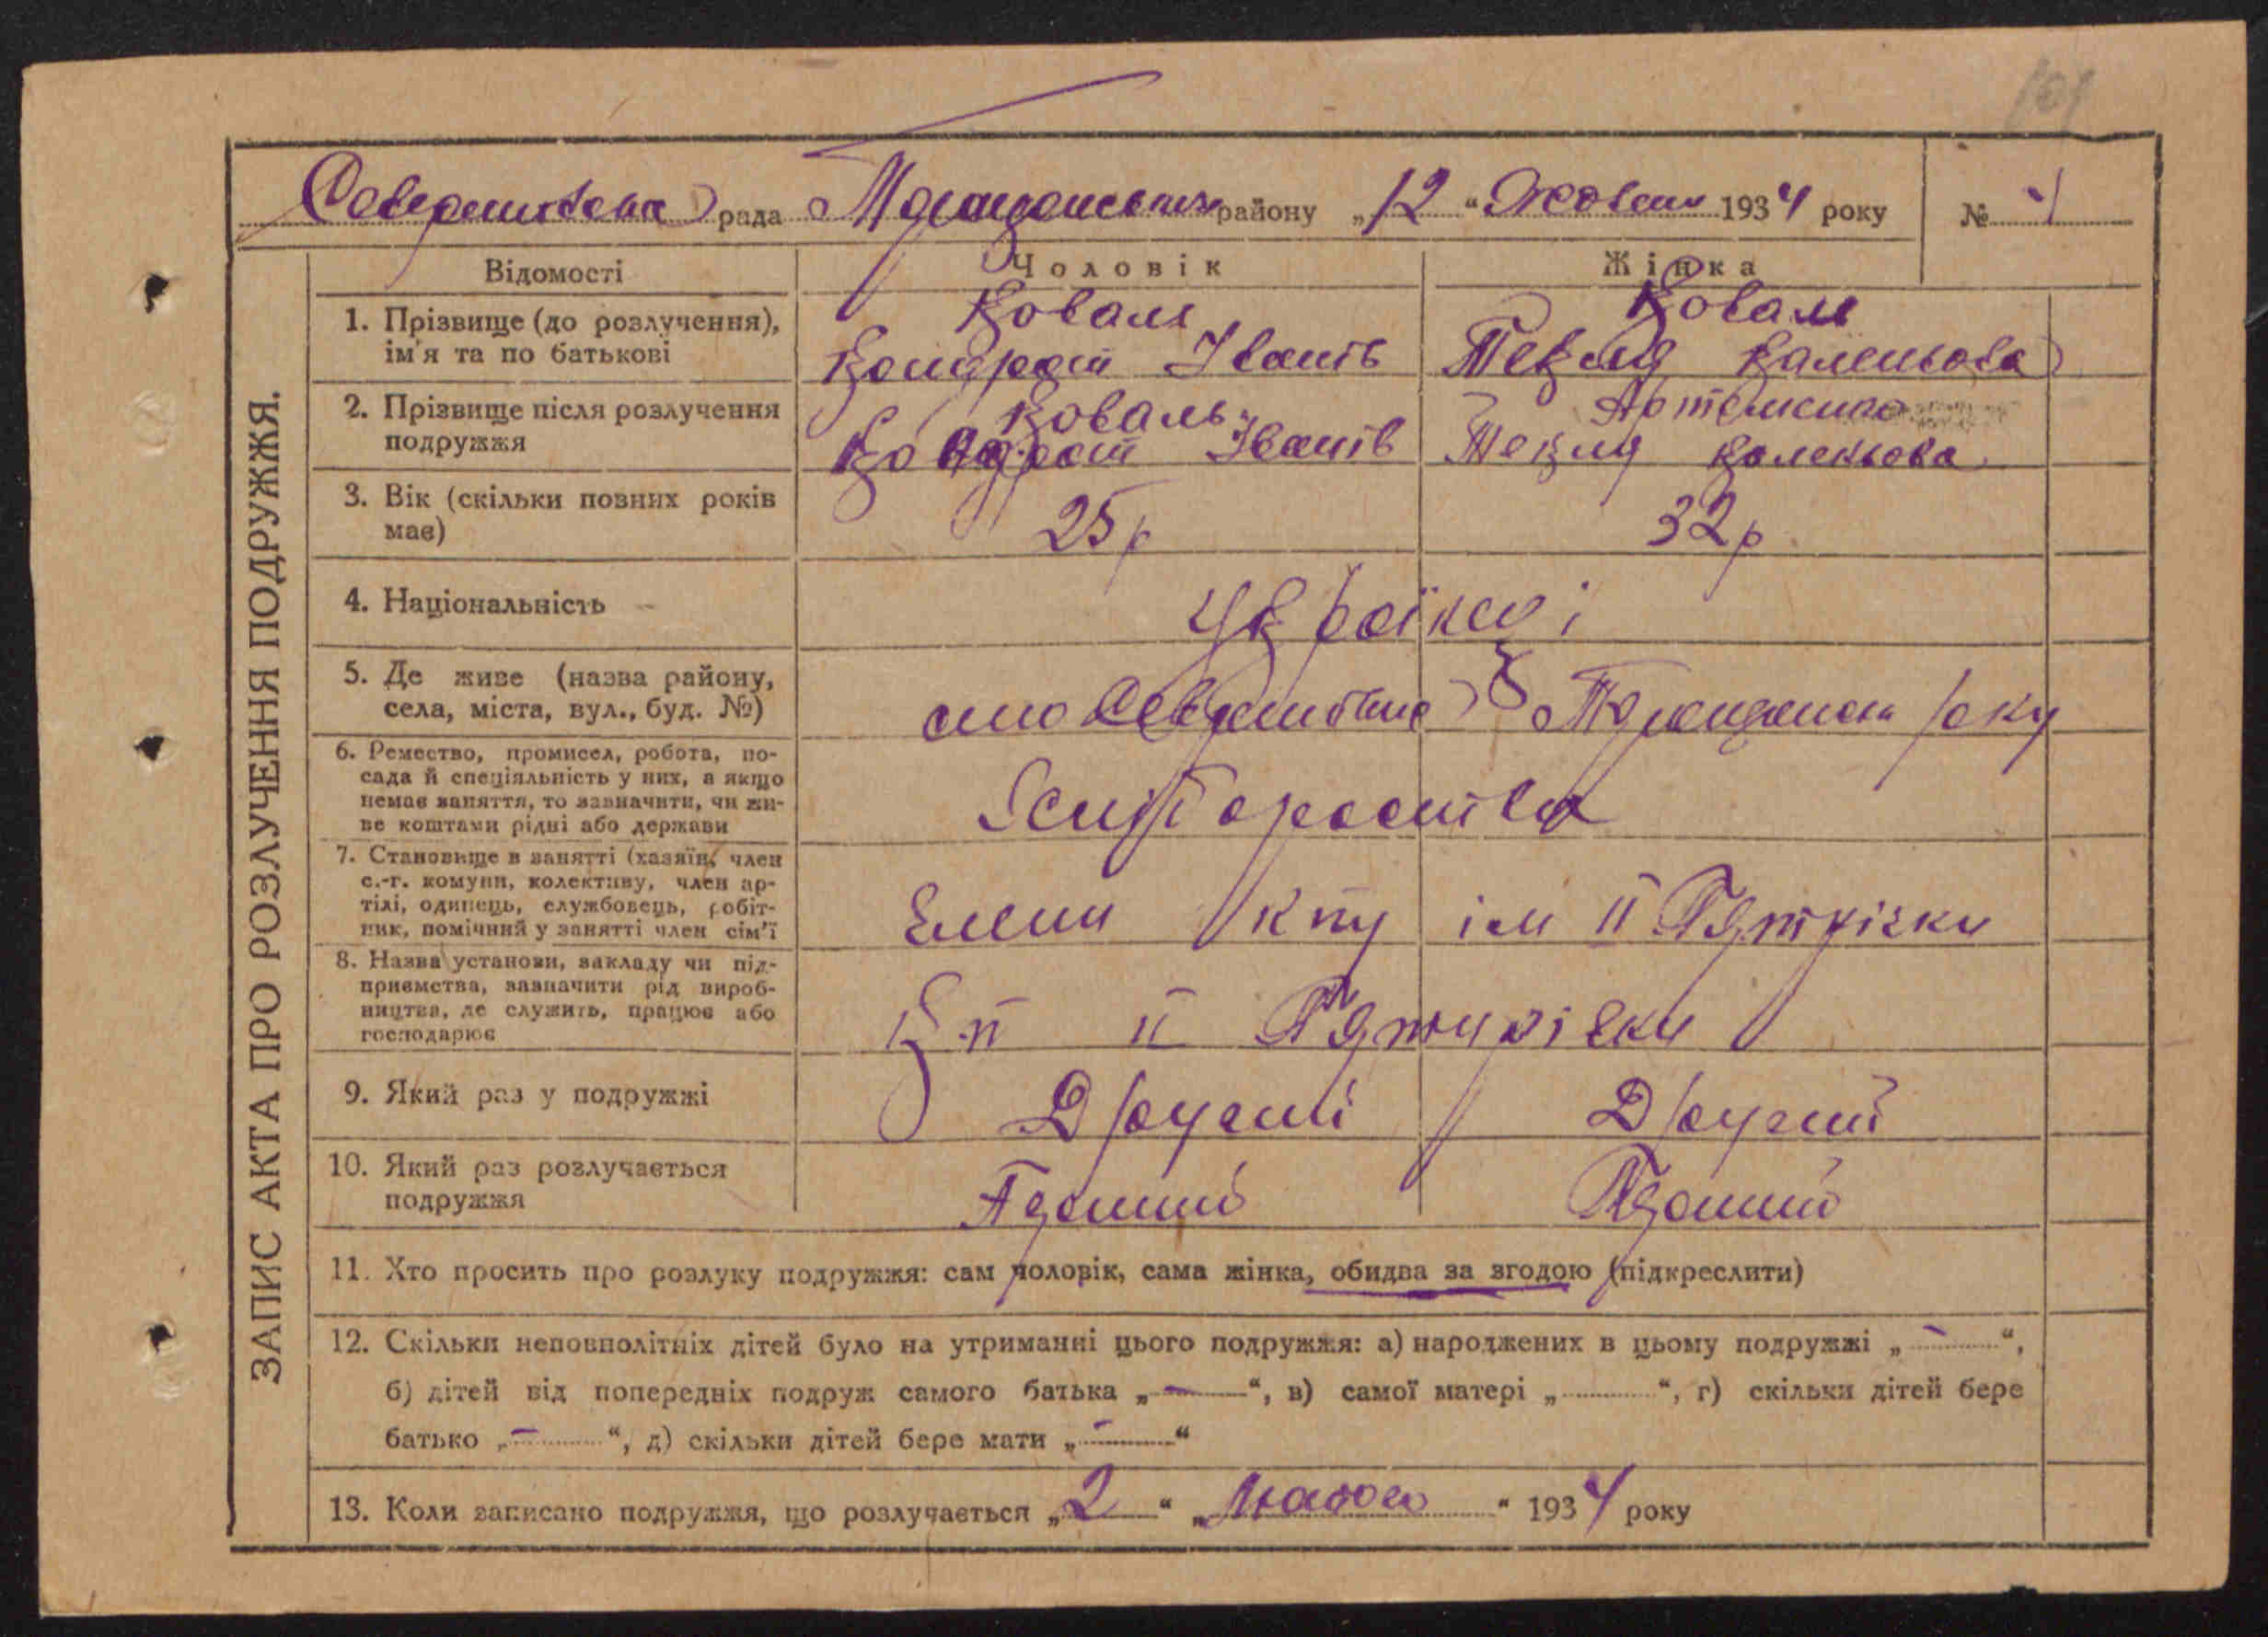 рада району „12“ Жовтня 1934 року № 1
ЗАПИС АКТА ПРО РОЗЛУЧЕННЯ ПОДРУЖЖЯ.
Відомості Чоловік Жінка
1. Прізвище (до розлучення),
ім'я та по батькові
Коваль
Кондрат Іванів
Коваль
Текля Каленькова
2. Прізвище після розлучення
подружжя
Коваль
Кондрат Іванів
Текля Каленькова
3. Вік (скільки повних років
має)
25р
32р
4. Національність
Українці
5. Де живе (назва району,
села, міста, вул., буд. №)
6. Ремество, промисел, робота, по-
сада й спеціяльність у них, а якщо
немає заняття, то зазначити, чи жи-
ве коштами рідні або держави
7. Становище в занятті (хазяїн, член
с.-г. комуни, колективу, член ар-
тілі, одинець, службовець, робіт-
ник, помічний у занятті член сім'ї
ім II Пятирічки
8. Назва установи, закладу чи під-
приємства, зазначити рід вироб-
ництва, де служить, працює або
господарює
II Пятирічки
9. Який раз у подружжі
Другий
Другий
10. Який раз розлучається
подружжя
11. Хто просить про розлуку подружжя: сам чоловік, сама жінка, обидва за згодою (підкреслити)
12. Скільки неповнолітніх дітей було на утриманні цього подружжя: а) народжених в цьому подружжі „ — “,
б) дітей від попередніх подруж самого батька „ — “, в) самої матері „ “, г) скільки дітей бере
батько „ — “, д) скільки дітей бере мати „ — “
13. Коли записано подружжя, що розлучається „2“ „Лютого“ 1934 року